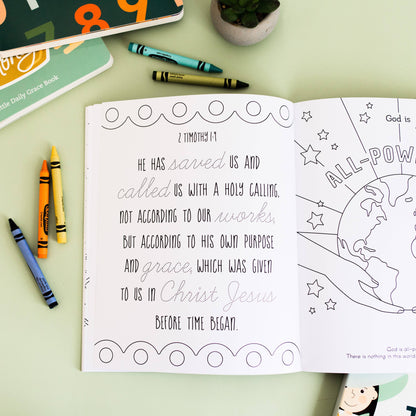 789
ttle Daily Grace Book
2 TIMOTHY 1:9
HE HAS saved US AND
called US WITH A HOLY CALLING,
NOT ACCORDING TO OUR works,
BUT ACCORDING TO HIS OWN PURPOSE
AND grace, WHICH WAS GIVEN
TO US IN Christ Jesus
BEFORE TIME BEGAN.
God is
ALL-POW
God is all-p
There is nothing in this world